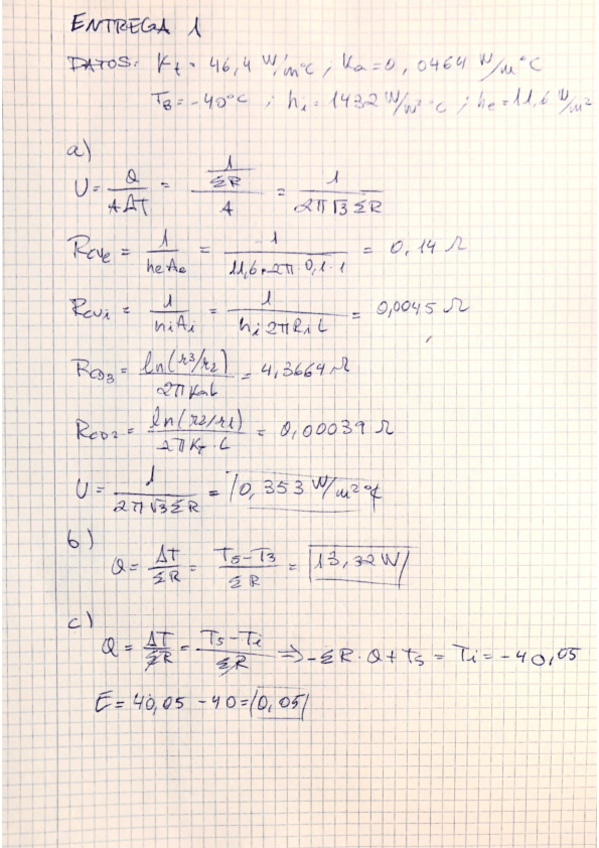 ENTREGA 1
DATOS: Kt = 46,4 W/m°C, Ka = 0,0464 W/m°C
TB = -40°C ; hi = 1432 W/m²°C ; he = 11,6 W/m²
a)
U = Q/AΔT = (1/ΣR)/A = 1/2πr3ΣR
Rcve = 1/heAe = 1/11,6·2π·0,1·1 = 0,14 Ω
Rcvi = 1/hiAi = 1/hi2πRiL = 0,0045 Ω
RCD3 = ln(r3/r2)/2πKaL = 4,3664 Ω
RCD2 = ln(r2/r1)/2πKt·L = 0,00039 Ω
U = 1/2πr3ΣR = 0,353 W/m²°C
b)
Q = ΔT/ΣR = T5-T3/ΣR = 13,32 W
c)
Q = ΔT/ΣR = T5-Ti/ΣR => -ΣR·Q+T5 = Ti = -40,05
E = 40,05 - 40 = 0,05